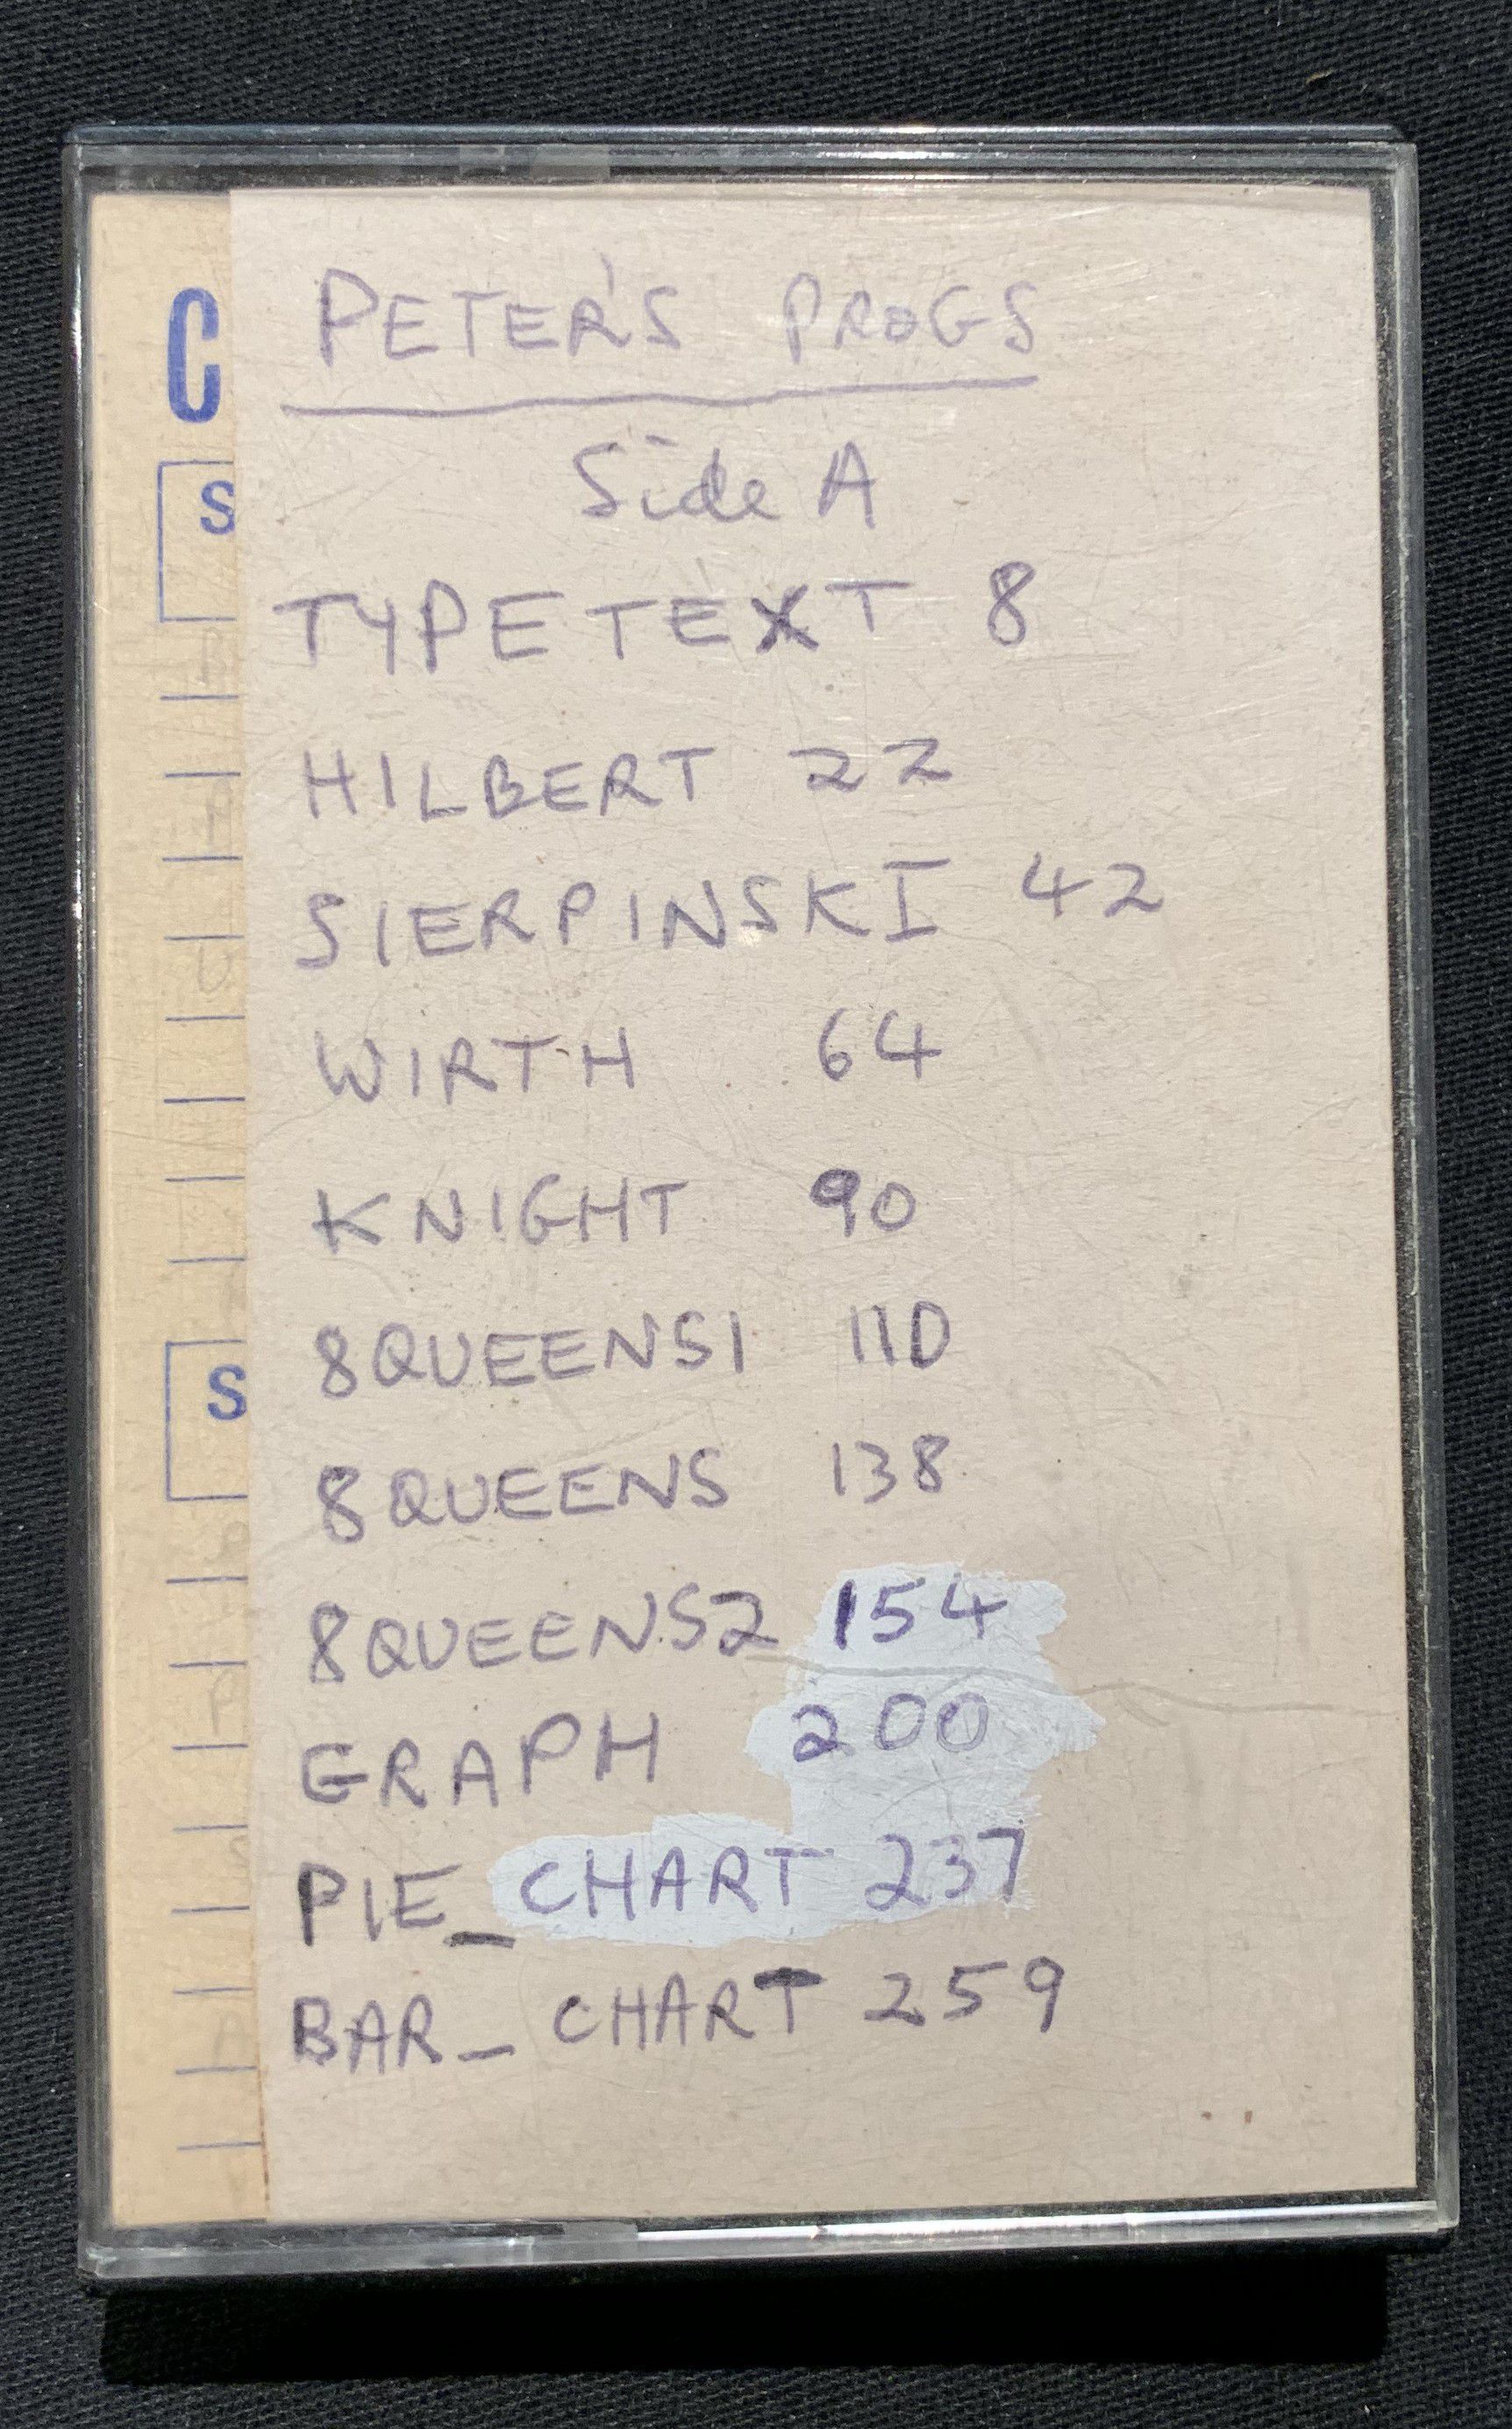 PETER'S PROGS
Side A
TYPETEXT 8
HILBERT 22
SIERPINSKI 42
WIRTH 64
KNIGHT 90
8QUEENS1 110
8QUEENS 138
8QUEENS2 154
GRAPH 200
PIE_CHART 237
BAR_CHART 259
C
S
S